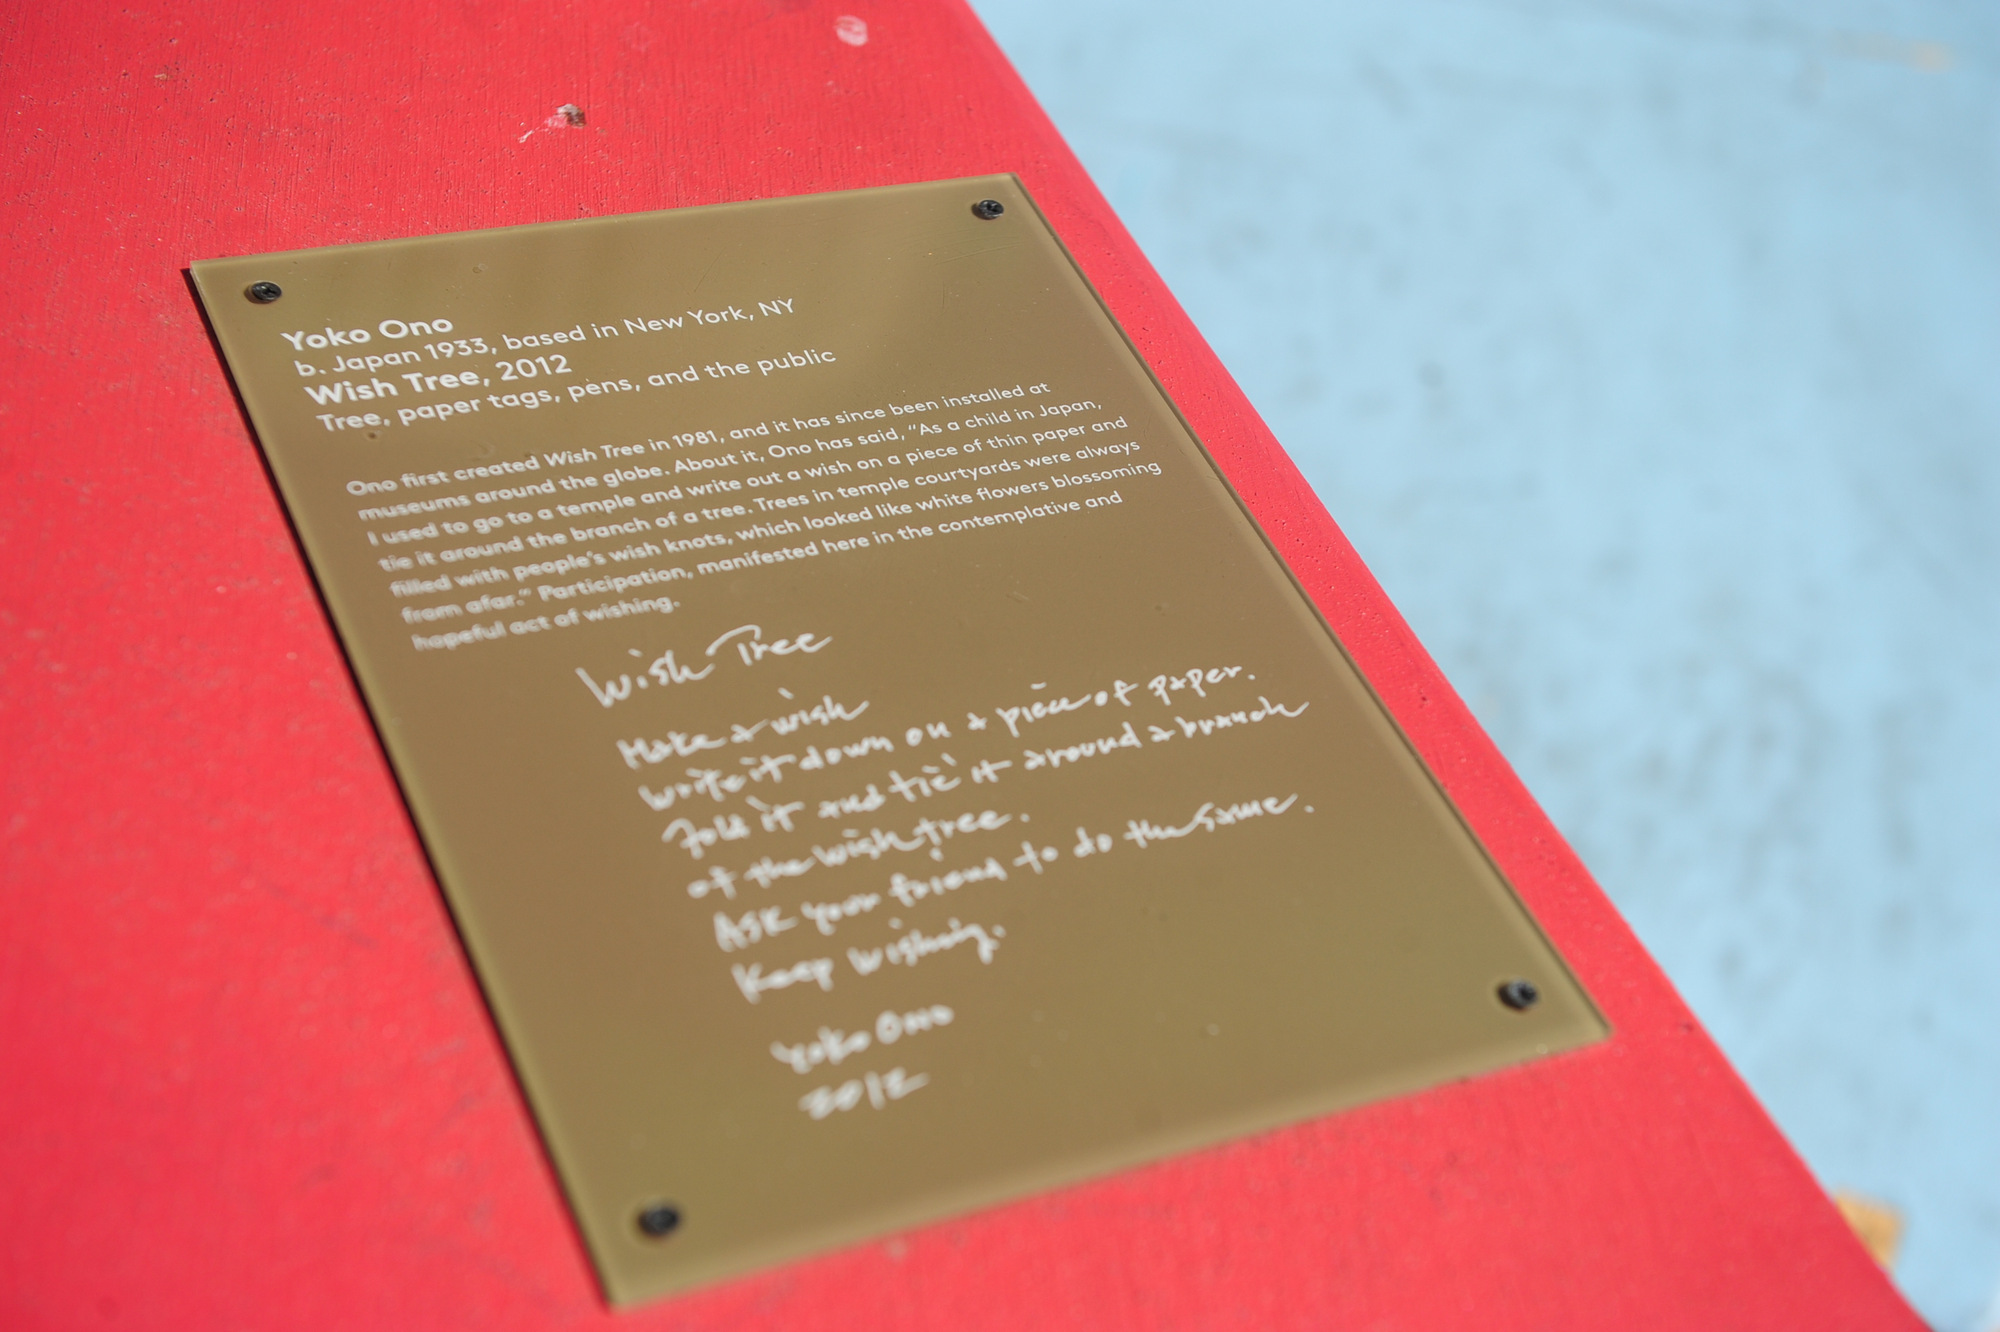 Yoko Ono
b. Japan 1933, based in New York, NY
Wish Tree, 2012
Tree, paper tags, pens, and the public
Ono first created Wish Tree in 1981, and it has since been installed at
museums around the globe. About it, Ono has said, “As a child in Japan,
I used to go to a temple and write out a wish on a piece of thin paper and
tie it around the branch of a tree. Trees in temple courtyards were always
filled with people’s wish knots, which looked like white flowers blossoming
from afar.” Participation, manifested here in the contemplative and
hopeful act of wishing.
Wish Tree
Make a wish
Write it down on a piece of paper.
Fold it and tie it around a branch
of the wish tree.
Ask your friend to do the same.
Keep wishing.
Yoko Ono
2012